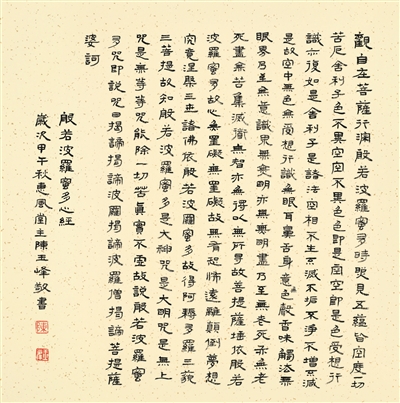 觀自在菩薩行深般若波羅蜜多時照見五蘊皆空度一切
苦厄舍利子色不異空空不異色色即是空空即是色受想行
識亦復如是舍利子是諸法空相不生不滅不垢不淨不增不減
是故空中無色無受想行識無眼耳鼻舌身意色聲香味觸法無
眼界乃至無意識界無無明亦無無明盡乃至無老死亦無老
死盡無苦集滅道無智亦無得以無所得故菩提薩埵依般若
波羅蜜多故心無罣礙無罣礙故無有恐怖遠離顛倒夢想
究竟涅槃三世諸佛依般若波羅蜜多故得阿耨多羅三藐
三菩提故知般若波羅蜜多是大神咒是大明咒是無上
咒是無等等咒能除一切苦真實不虛故說般若波羅蜜
多咒即說咒曰揭諦揭諦波羅揭諦波羅僧揭諦菩提薩
婆訶
般若波羅蜜多心經
歲次甲午秋惠風堂主陳玉峰敬書